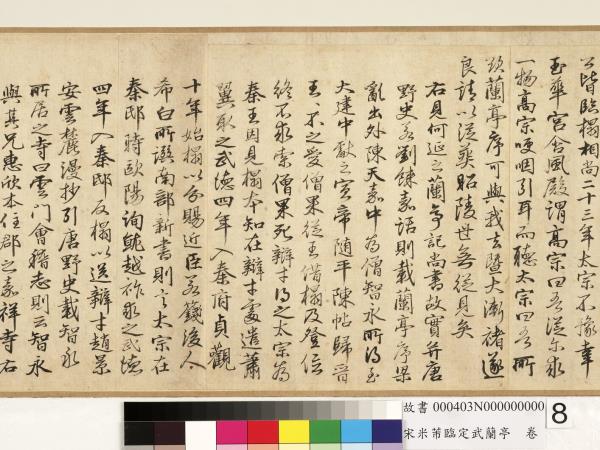 公皆臨搨相尚二十三年太宗不豫幸
玉華宮含風殿謂高宗曰吾從尓求
一物高宗哽咽引耳而聽太宗曰吾所
欲蘭亭序可與我去暨大漸褚遂
良請以從葬昭陵世無從見矣
右見何延之蘭亭記尚書故實并唐
野史至劉餗嘉話則載蘭亭序梁
亂出外陳天嘉中為僧智永所得至
大建中獻之宣帝隨平陳帖歸晉
王王不之愛僧果從王借搨及登位
終不求索僧果死辯才得之太宗為
秦王因見搨本知在辯才處遣蕭
翼取之武德四年入秦府貞觀
十年始搨以分賜近臣吾錢後人
希白所譔南部新書則言太宗在
秦邸時歐陽詢就越求之武德
四年入秦邸反搨以送辯才趙景
安雲麓漫抄引唐野史載智永
所居之寺曰雲門會稽志則云智永
與其兄惠欣本住郡之嘉祥寺右
故書 000403N000000000
宋米芾臨定武蘭亭 卷
8